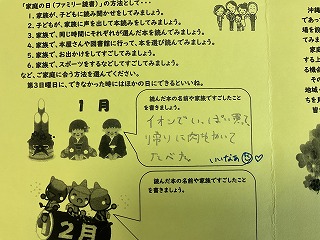 「家庭の日(ファミリー読書)」の方法として・・・
1. 家族が、子どもに読み聞かせをしてみましょう。
2. 子どもが、家族に声を出して本読みをしてみましょう。
3. 家族で、同じ時間にそれぞれが選んだ本を読んでみましょう。
4. 家族で、本屋さんや図書館に行って、本を選び読んでみましょう。
5. 家族で、お出かけをしてすごしてみましょう。
6. 家族で、スポーツをするなどしてすごしてみましょう。
など、ご家庭に合う方法を選んでください。
第3日曜日に、できなかった時にはほかの日にできるといいね。
1月
読んだ本の名前や家族ですごしたことを書きましょう。
イオンでいっぱい買って
帰りに肉をかいて
たべた。
いいなぁ
2月
読んだ本の名前や家族ですごしたこと
を書きましょう。
沖縄